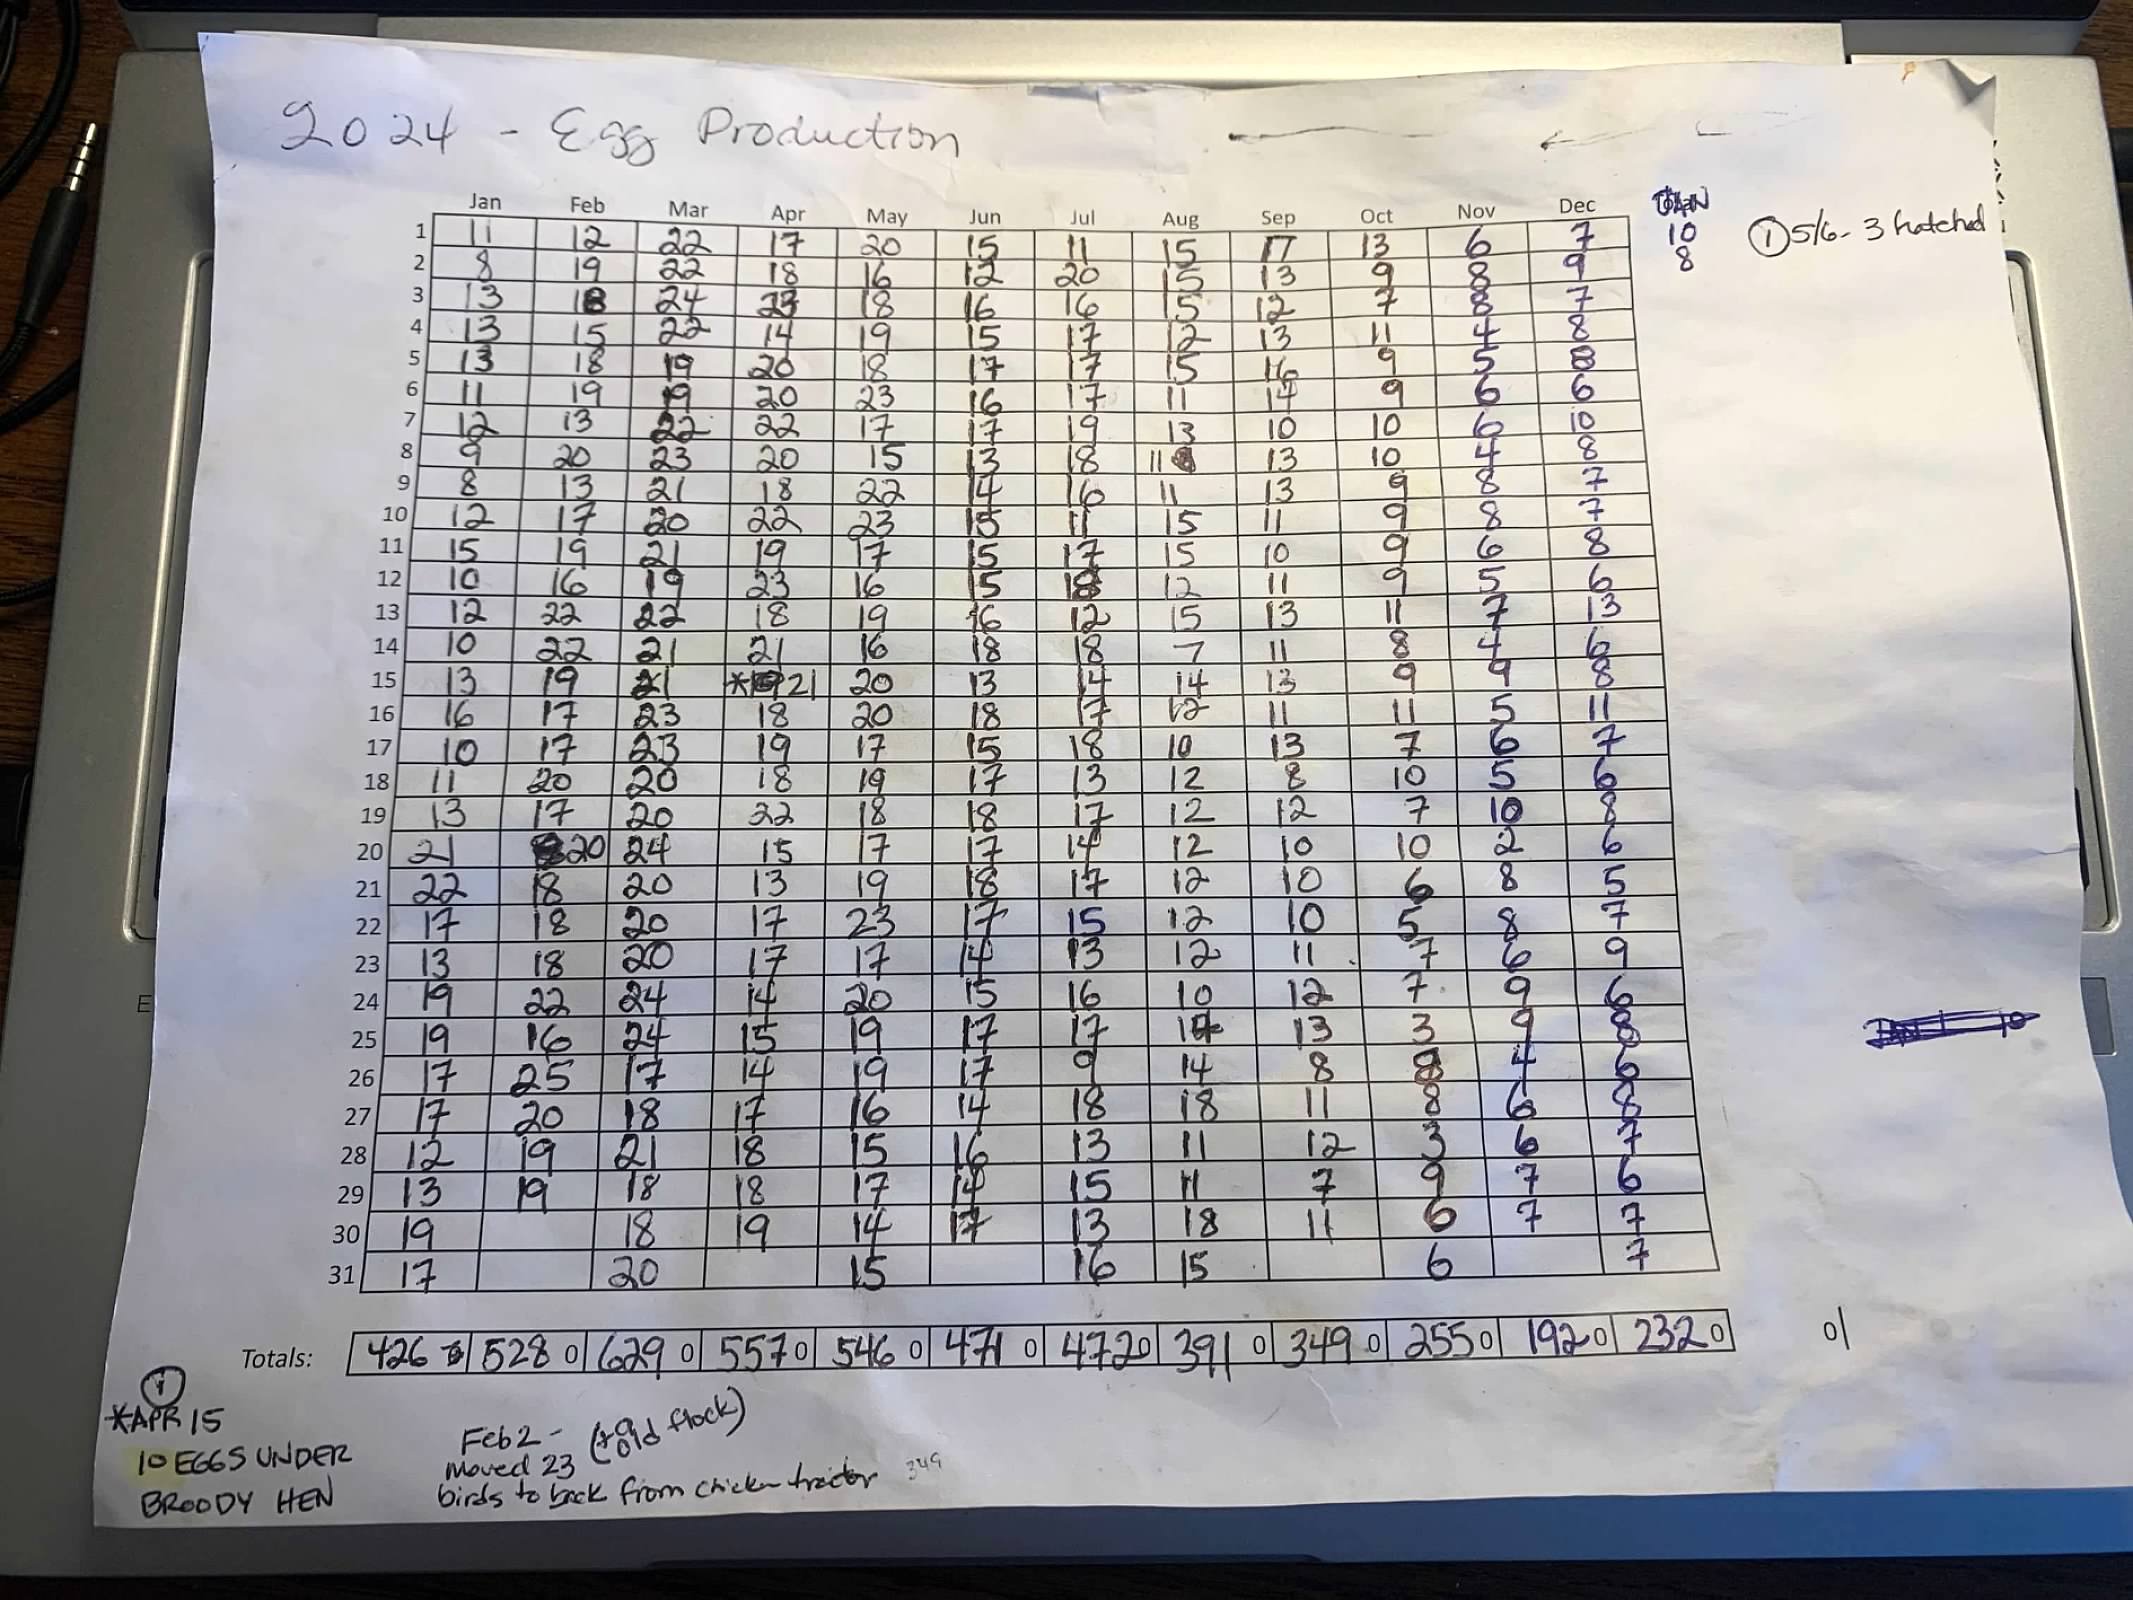 2024 - Egg Production
Jan Feb Mar Apr May Jun Jul Aug Sep Oct Nov Dec JAN
1 11 12 22 17 20 15 11 15 17 13 6 7 10 ① 5/6 - 3 hatched
2 8 19 22 18 16 12 20 15 13 9 8 9 8
3 13 18 24 23 18 16 16 15 12 7 8 7
4 13 15 22 14 19 15 17 12 13 11 4 8
5 13 18 19 20 18 17 17 15 16 9 5 8
6 11 19 19 20 23 16 17 11 14 9 6 6
7 12 13 22 22 17 17 19 13 10 10 6 10
8 9 20 23 20 15 13 18 11 13 10 4 8
9 8 13 21 18 22 14 16 11 13 9 8 7
10 12 17 20 22 23 15 11 15 11 9 8 7
11 15 19 21 19 17 15 17 15 10 9 6 8
12 10 16 19 23 16 15 18 12 11 9 5 6
13 12 22 22 18 19 16 12 15 13 11 7 13
14 10 22 21 21 16 18 18 7 11 8 4 6
15 13 19 21 * 21 20 13 14 14 13 9 9 8
16 16 17 23 18 20 18 17 12 11 11 5 11
17 10 17 23 19 17 15 18 10 13 7 6 7
18 11 20 20 18 19 17 13 12 8 10 5 6
19 13 17 20 22 18 18 17 12 12 7 10 8
20 21 20 24 15 17 17 14 12 10 10 2 6
21 22 18 20 13 19 18 17 12 10 6 8 5
22 17 18 20 17 23 17 15 12 10 5 8 7
23 13 18 20 17 17 14 13 12 11 7 6 9
24 19 22 24 14 20 15 16 10 12 7 9 6
25 19 16 24 15 19 17 17 13 3 9 8
26 17 25 17 14 19 17 9 14 8 4 6
27 17 20 18 17 16 14 18 18 11 8 6 8
28 12 19 21 18 15 16 13 11 12 3 6 7
29 13 19 18 18 17 14 15 11 7 9 7 6
30 19 18 19 14 17 13 18 11 6 7 7
31 17 20 15 16 15 6 7
Totals: 426 528 0 629 0 557 0 546 0 471 0 472 0 391 0 349 0 255 0 192 0 232 0 0
①
*APR 15
10 EGGS UNDER
BROODY HEN
Feb 2 - (+9 old flock)
moved 23
birds to back from chicken tractor 349